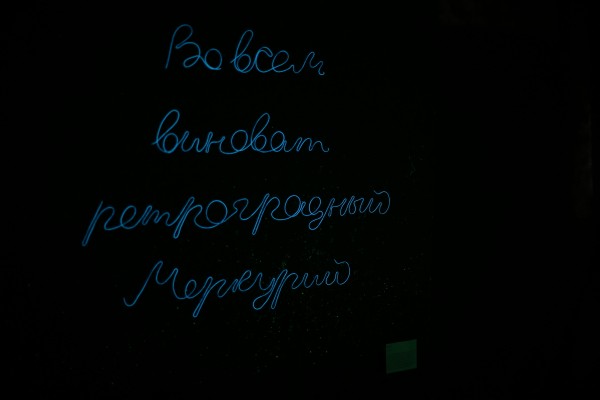 Во всем
виноват
ретроградный
Меркурий